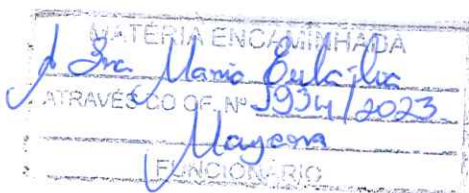 MATÉRIA ENCAMINHADA
À Sra Maria Eulajlia
ATRAVÉS DO OF. Nº 1934/2023
Mayara
FUNCIONÁRIO